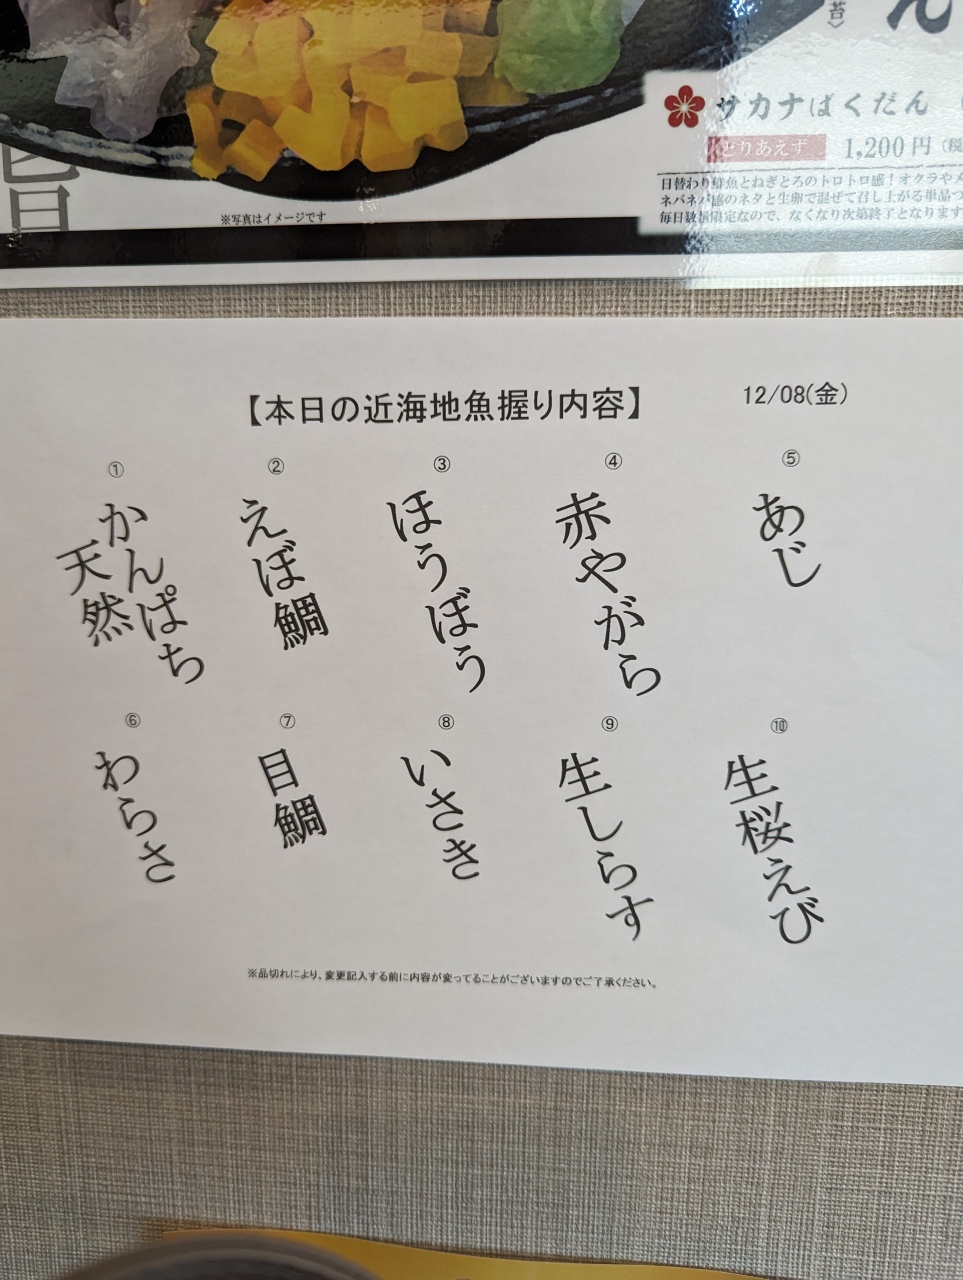 旨
※写真はイメージです
ん
サカナばくだん
とりあえず 1,200円(税
日替わり鮮魚とねぎとろのトロトロ感！オクラやメ
ネバネバ感のネタと生卵で混ぜて召し上がる単品つ
毎日数量限定なので、なくなり次第終了となります
【本日の近海地魚握り内容】 12/08(金)
①
かんぱち
天然
②
えぼ鯛
③
ほうぼう
④
赤やがら
⑤
あじ
⑥
わらさ
⑦
目鯛
⑧
いさき
⑨
生しらす
⑩
生桜えび
※品切れにより、変更記入する前に内容が変ってることがございますのでご了承ください。